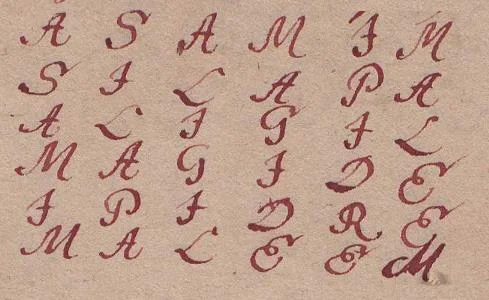 A S A M I M
S I L A P A
A L I G I L
M A G I D E
I P I D R E
M A L E E M